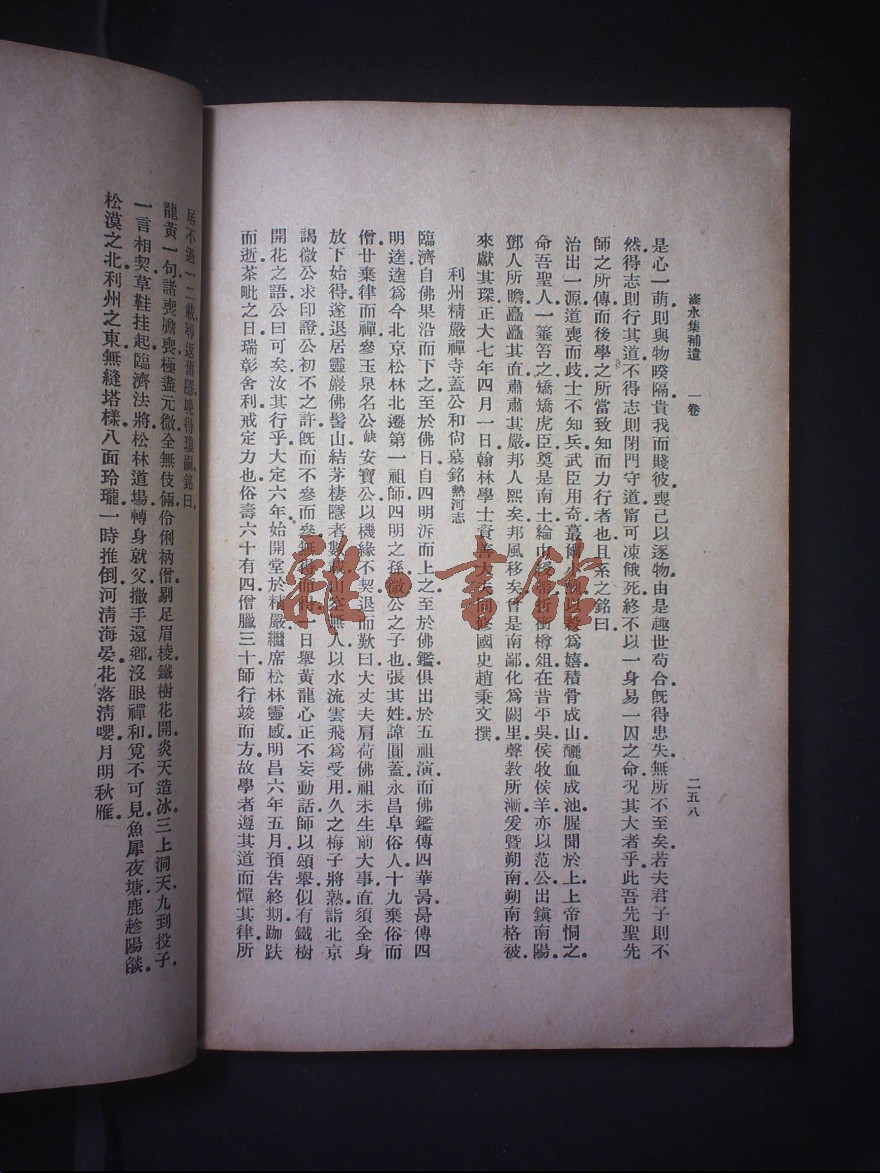 滏水集補遺　一卷　二五八
是心一萌則與物暌隔貴我而賤彼喪己以逐物由是趣世苟合既得患失無所不至矣若夫君子則不
然得志則行其道不得志則閉門守道甯可凍餓死終不以一身易一囚之命况其大者乎此吾先聖先
師之所傳而後學之所當致知而力行者也且系之銘曰
治出一源道喪而歧士不知兵武臣用奇蕞爾 以 爲嬉積骨成山釃血成池腥聞於上上帝恫之
命吾聖人一箠笞之矯矯虎臣奠是南土綸巾 折衝樽俎在昔平吳侯牧侯羊亦以范公出鎭南陽
鄧人所瞻蠢蠢其直肅肅其嚴邦人熙矣邦風移矣曾是南鄙化爲闕里聲教所漸爰暨朔南朔南格被
來獻其琛正大七年四月一日翰林學士資善大夫同修國史趙秉文撰
利州精嚴禪寺蓋公和尙墓銘熱河志
臨濟自佛果沿而下之至於佛日自四明泝而上之至於佛鑑俱出於五祖演而佛鑑傳四華 傳四
明逵逵爲今北京松林北遷第一祖師四明之孫微公之子也張其姓諱圓蓋永昌阜俗人十九棄俗而
僧廿棄律而禪參玉泉名公缺安寶公以機緣不契退而歎曰大丈夫肩荷佛祖未生前大事直須全身
放下始得遂退居靈巖佛髻山結茅棲隱者數歲山空無人以水流雲飛爲受用久之梅子將熟詣北京
謁微公求印證公初不之許既而不參而參無得而得一日舉黃龍心正不妄動話師以頌舉似有鐵樹
開花之語公曰可矣汝其行乎大定六年始開堂於精嚴繼席松林靈感明昌六年五月預告終期跏趺
而逝茶毗之日瑞彰舍利戒定力也俗壽六十有四僧臘三十師行竣而方故學者遵其道而憚其律所
居不過一二載尋返舊隱晚得瓊嗣銘曰
龍黃一句諸喪膽喪極盡元微全無伎倆伶俐衲僧剔足眉棱鐵樹花開炎天造冰三上洞天九到投子
一言相契草鞋挂起臨濟法將松林道場轉身就父撒手還鄕沒眼禪和覓不可見魚犀夜塘鹿趁陽燄
松漠之北利州之東無縫塔樣八面玲瓏一時推倒河淸海晏花落淸嚶月明秋雁